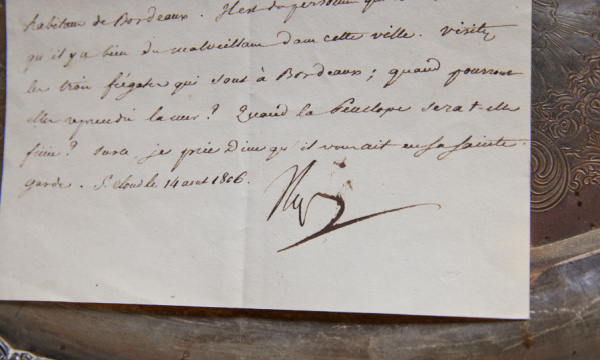 habitans de Bordeaux. Il est des personnes qui
qu'il y a bien du malveillans dans cette ville. visitez
les trois frégates qui sont à Bordeaux; quand pourront
elles reprendre la mer? Quand la Penelope sera t-elle
finie? Sur ce je prie Dieu qu'il vous ait en sa sainte
garde. St. Cloud le 14 aout 1806.
Nap